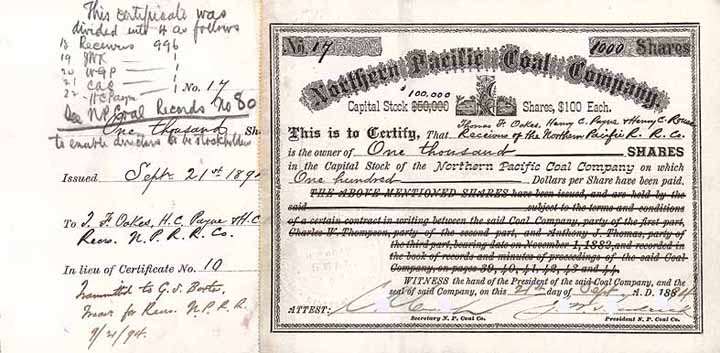 This certificate was
divided into 4 as follows
18 Receivers 996
19 1
20 WGP 1
21 CAG 1
22 HC Payne 1
No. 17
See N.P. Coal Records No 80
One thousand Sh
to enable directors to be stockholders
Issued Sept. 21st 189
To T. F. Oakes, H.C. Payne & H.C.
Recrs. N. P. R. R. Co.
In lieu of Certificate No. 10
Transmitted to G. S.
for Recrs. N.P.R.R.
9/21/94.
No. 17 1000 Shares
Northern Pacific Coal Company.
$100,000
Capital Stock $50,000 Shares, $100 Each.
Thomas F. Oakes, Henry C. Payne & Henry C. Rouse
This is to Certify, That Receivers of the Northern Pacific R. R. Co.
is the owner of One thousand SHARES
in the Capital Stock of the Northern Pacific Coal Company on which
One hundred Dollars per Share have been paid.
THE ABOVE MENTIONED SHARES have been issued, and are held by the
said subject to the terms and conditions
of a certain contract in writing between the said Coal Company, party of the first part,
Charles W. Thompson, party of the second part, and Anthony J. Thomas, party of
the third part, bearing date on November 1, 1882, and recorded in
the book of records and minutes of proceedings of the said Coal
Company, on pages 39, 40, 41, 42, 43 and 44.
WITNESS the hand of the President of the said Company, and the
seal of said Company, on this 21st day of Sept A.D. 1894
ATTEST:
Secretary N. P. Coal Co. President N. P. Coal Co.